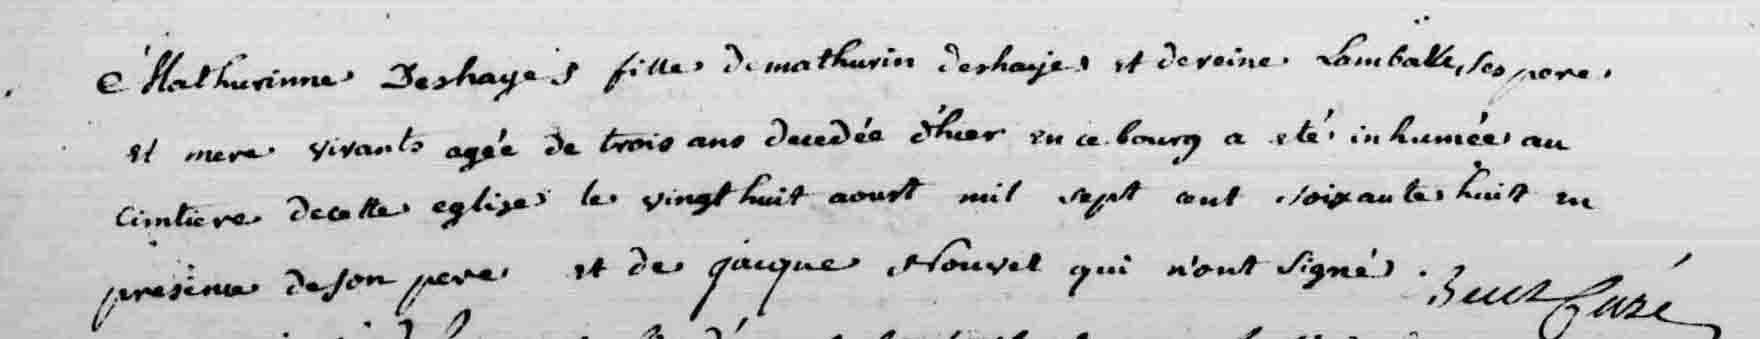 Mathurinne Deshayes fille de mathurin deshayes et de reine Lamballe, ses pere
et mere vivants agée de trois ans decedée d'hier en ce bourg a eté inhumée au
cimtiere de cette eglise le vingt huit aoust mil sept cent soixante huit en
presence de son pere et de jacque Nouvel qui n'ont signé.
Curé